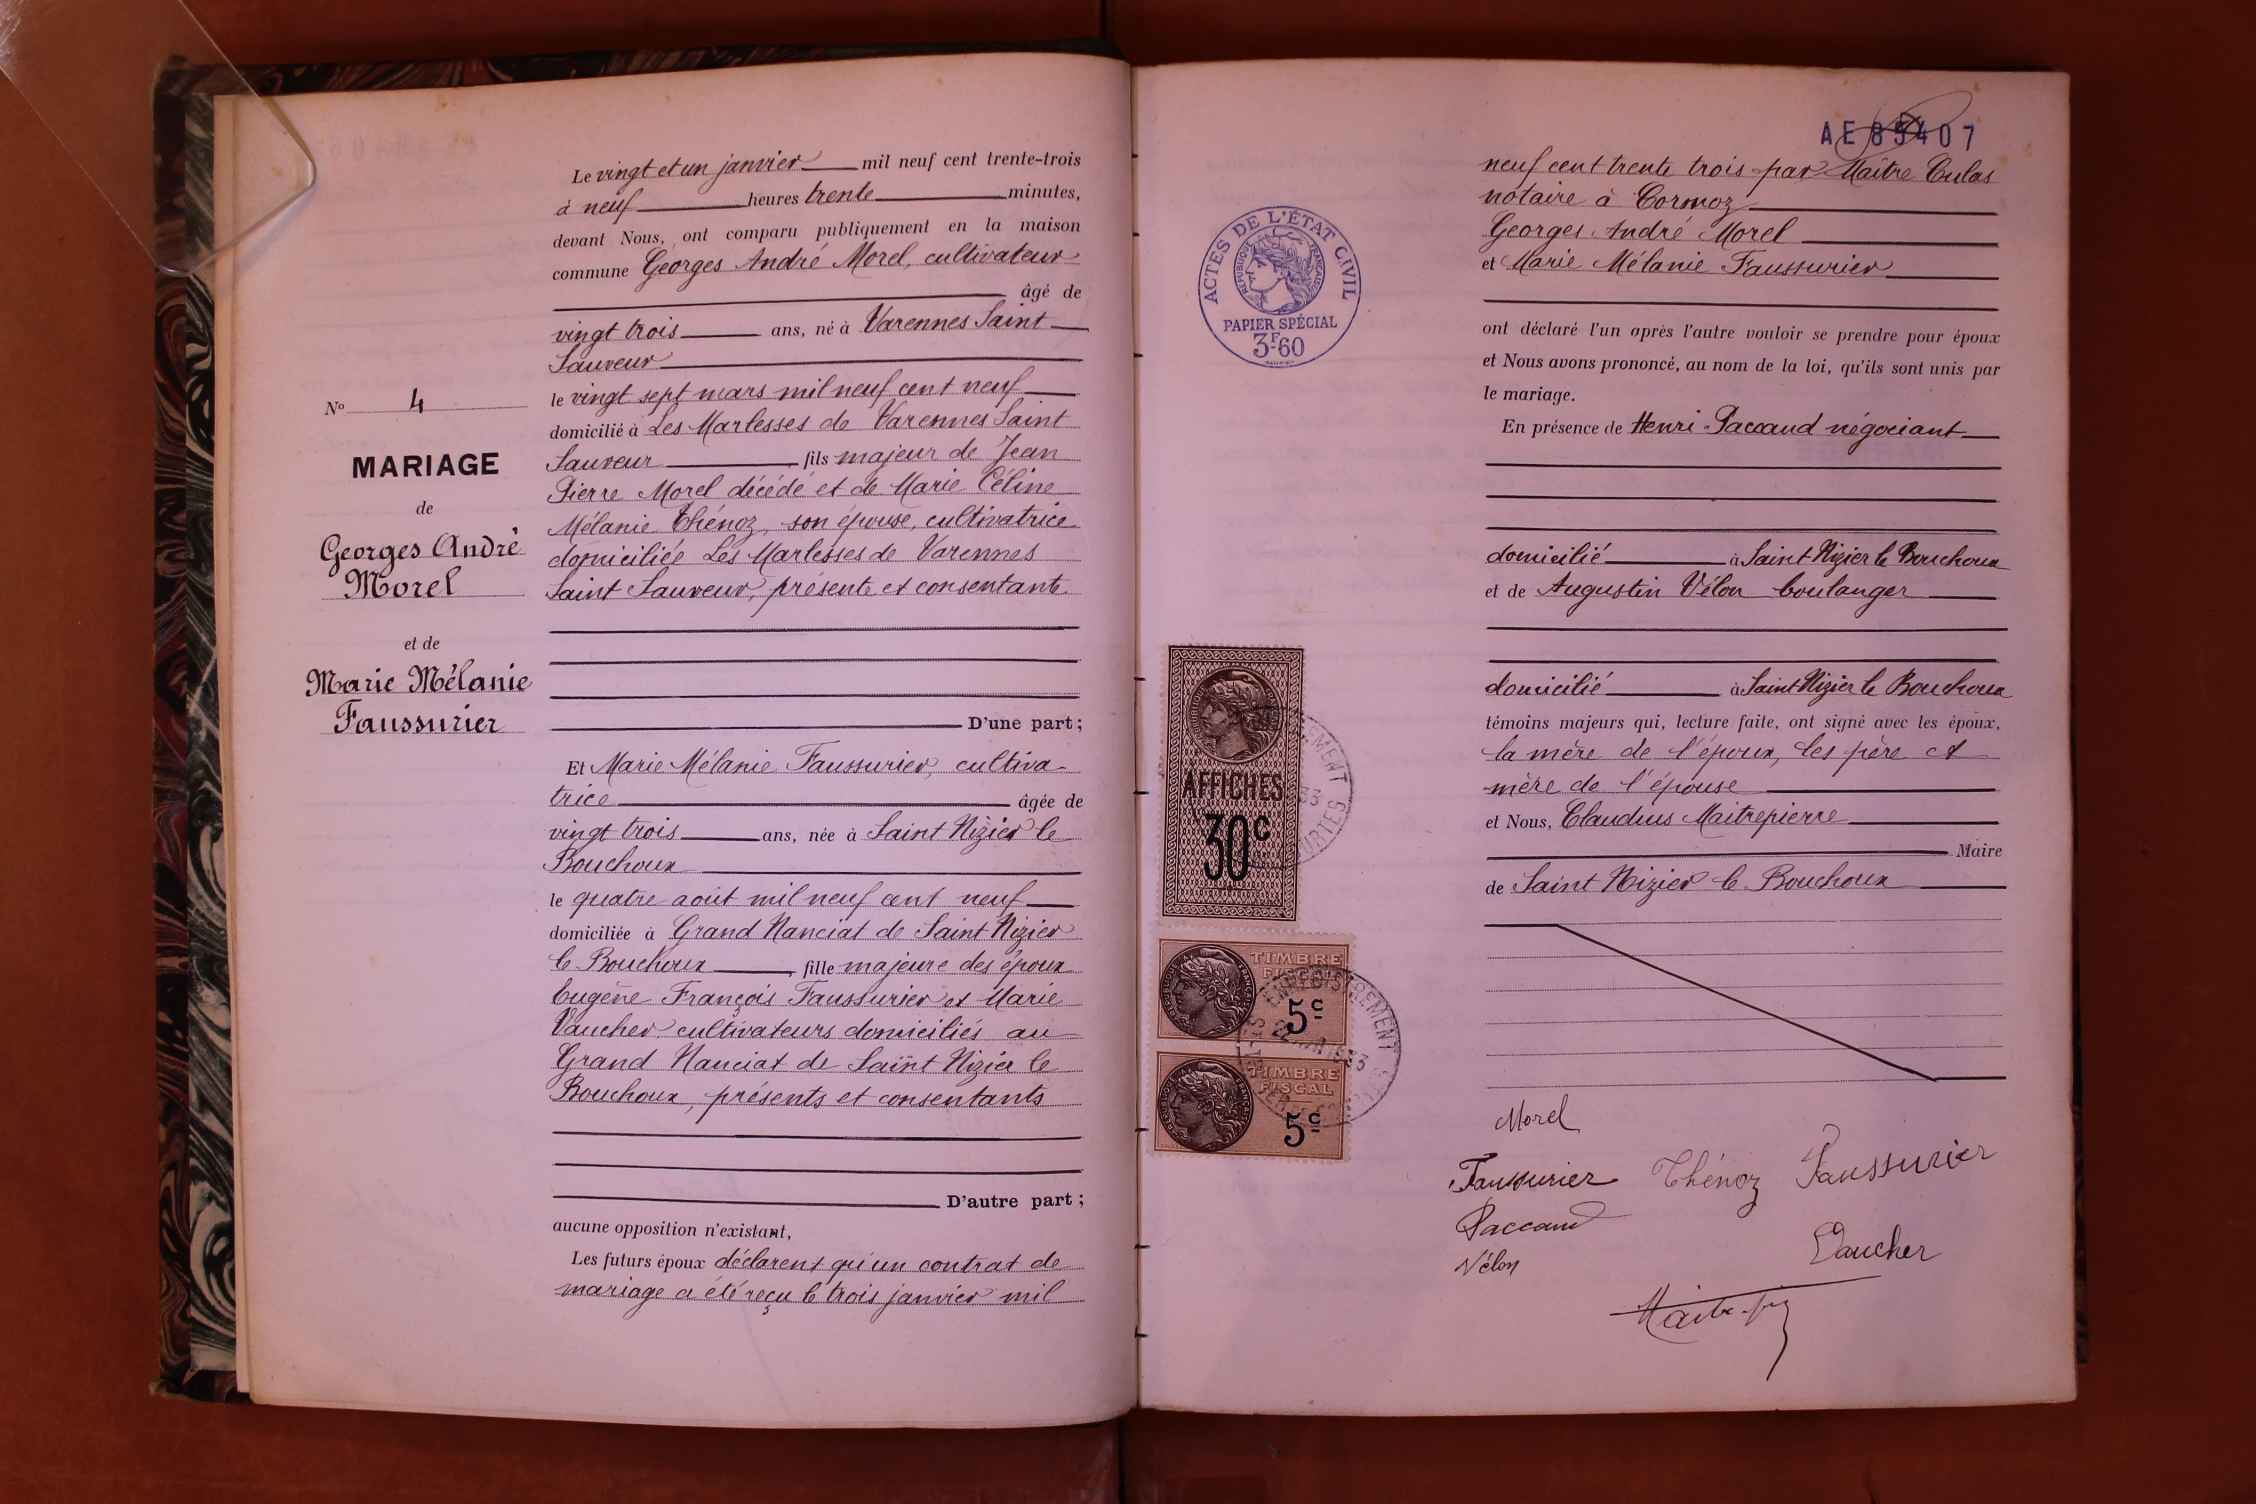 Le vingt et un janvier mil neuf cent trente-trois
à neuf heures trente minutes,
devant Nous, ont comparu publiquement en la maison
commune Georges André Morel, cultivateur
âgé de
vingt trois ans, né à Varennes Saint
Sauveur
le vingt sept mars mil neuf cent neuf
domicilié à Les Marlesses de Varennes Saint
Sauveur fils majeur de Jean
Pierre Morel décédé et de Marie Céline
Mélanie Thénoz, son épouse, cultivatrice
domiciliée Les Marlesses de Varennes
Saint Sauveur, présente et consentante
D'une part ;
Et Marie Mélanie Faussurier, cultiva-
trice âgée de
vingt trois ans, née à Saint Nizier le
Bouchoux
le quatre août mil neuf cent neuf
domiciliée à Grand Nanciat de Saint Nizier
le Bouchoux, fille majeure des époux
Eugène François Faussurier et Marie
Vaucher cultivateurs domiciliés au
Grand Nanciat de Saint Nizier le
Bouchoux, présents et consentants
D'autre part ;
aucune opposition n'existant,
Les futurs époux déclarent qu'un contrat de
mariage a été reçu le trois janvier mil
No 4
MARIAGE
de
Georges André
Morel
et de
Marie Mélanie
Faussurier
AE 85407
neuf cent trente trois par Maître Culas
notaire à Cormoz
Georges André Morel
et Marie Mélanie Faussurier
ont déclaré l'un après l'autre vouloir se prendre pour époux
et Nous avons prononcé, au nom de la loi, qu'ils sont unis par
le mariage.
En présence de Henri Paccaud négociant
domicilié à Saint Nizier le Bouchoux
et de Augustin Vélon boulanger
domicilié à Saint Nizier le Bouchoux
témoins majeurs qui, lecture faite, ont signé avec les époux,
la mère de l'époux, les père et
mère de l'épouse
et Nous, Claudius Maitrepierre
Maire
de Saint Nizier le Bouchoux
Morel
Faussurier Thénoz Faussurier
Paccaud
Vaucher
Vélon
ACTES DE L'ÉTAT CIVIL
RÉPUBLIQUE FRANÇAISE
PAPIER SPÉCIAL
3F60
AFFICHES
30c
TIMBRE
FISCAL
5c
TIMBRE
FISCAL
5c
ENREGISTREMENT